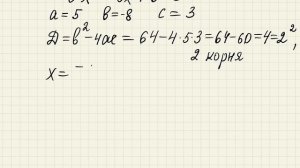 a = 5 в = -8 c = 3
D = в² - 4ac = 64 - 4·5·3 = 64 - 60 = 4 = 2²,
2 корня
x = -